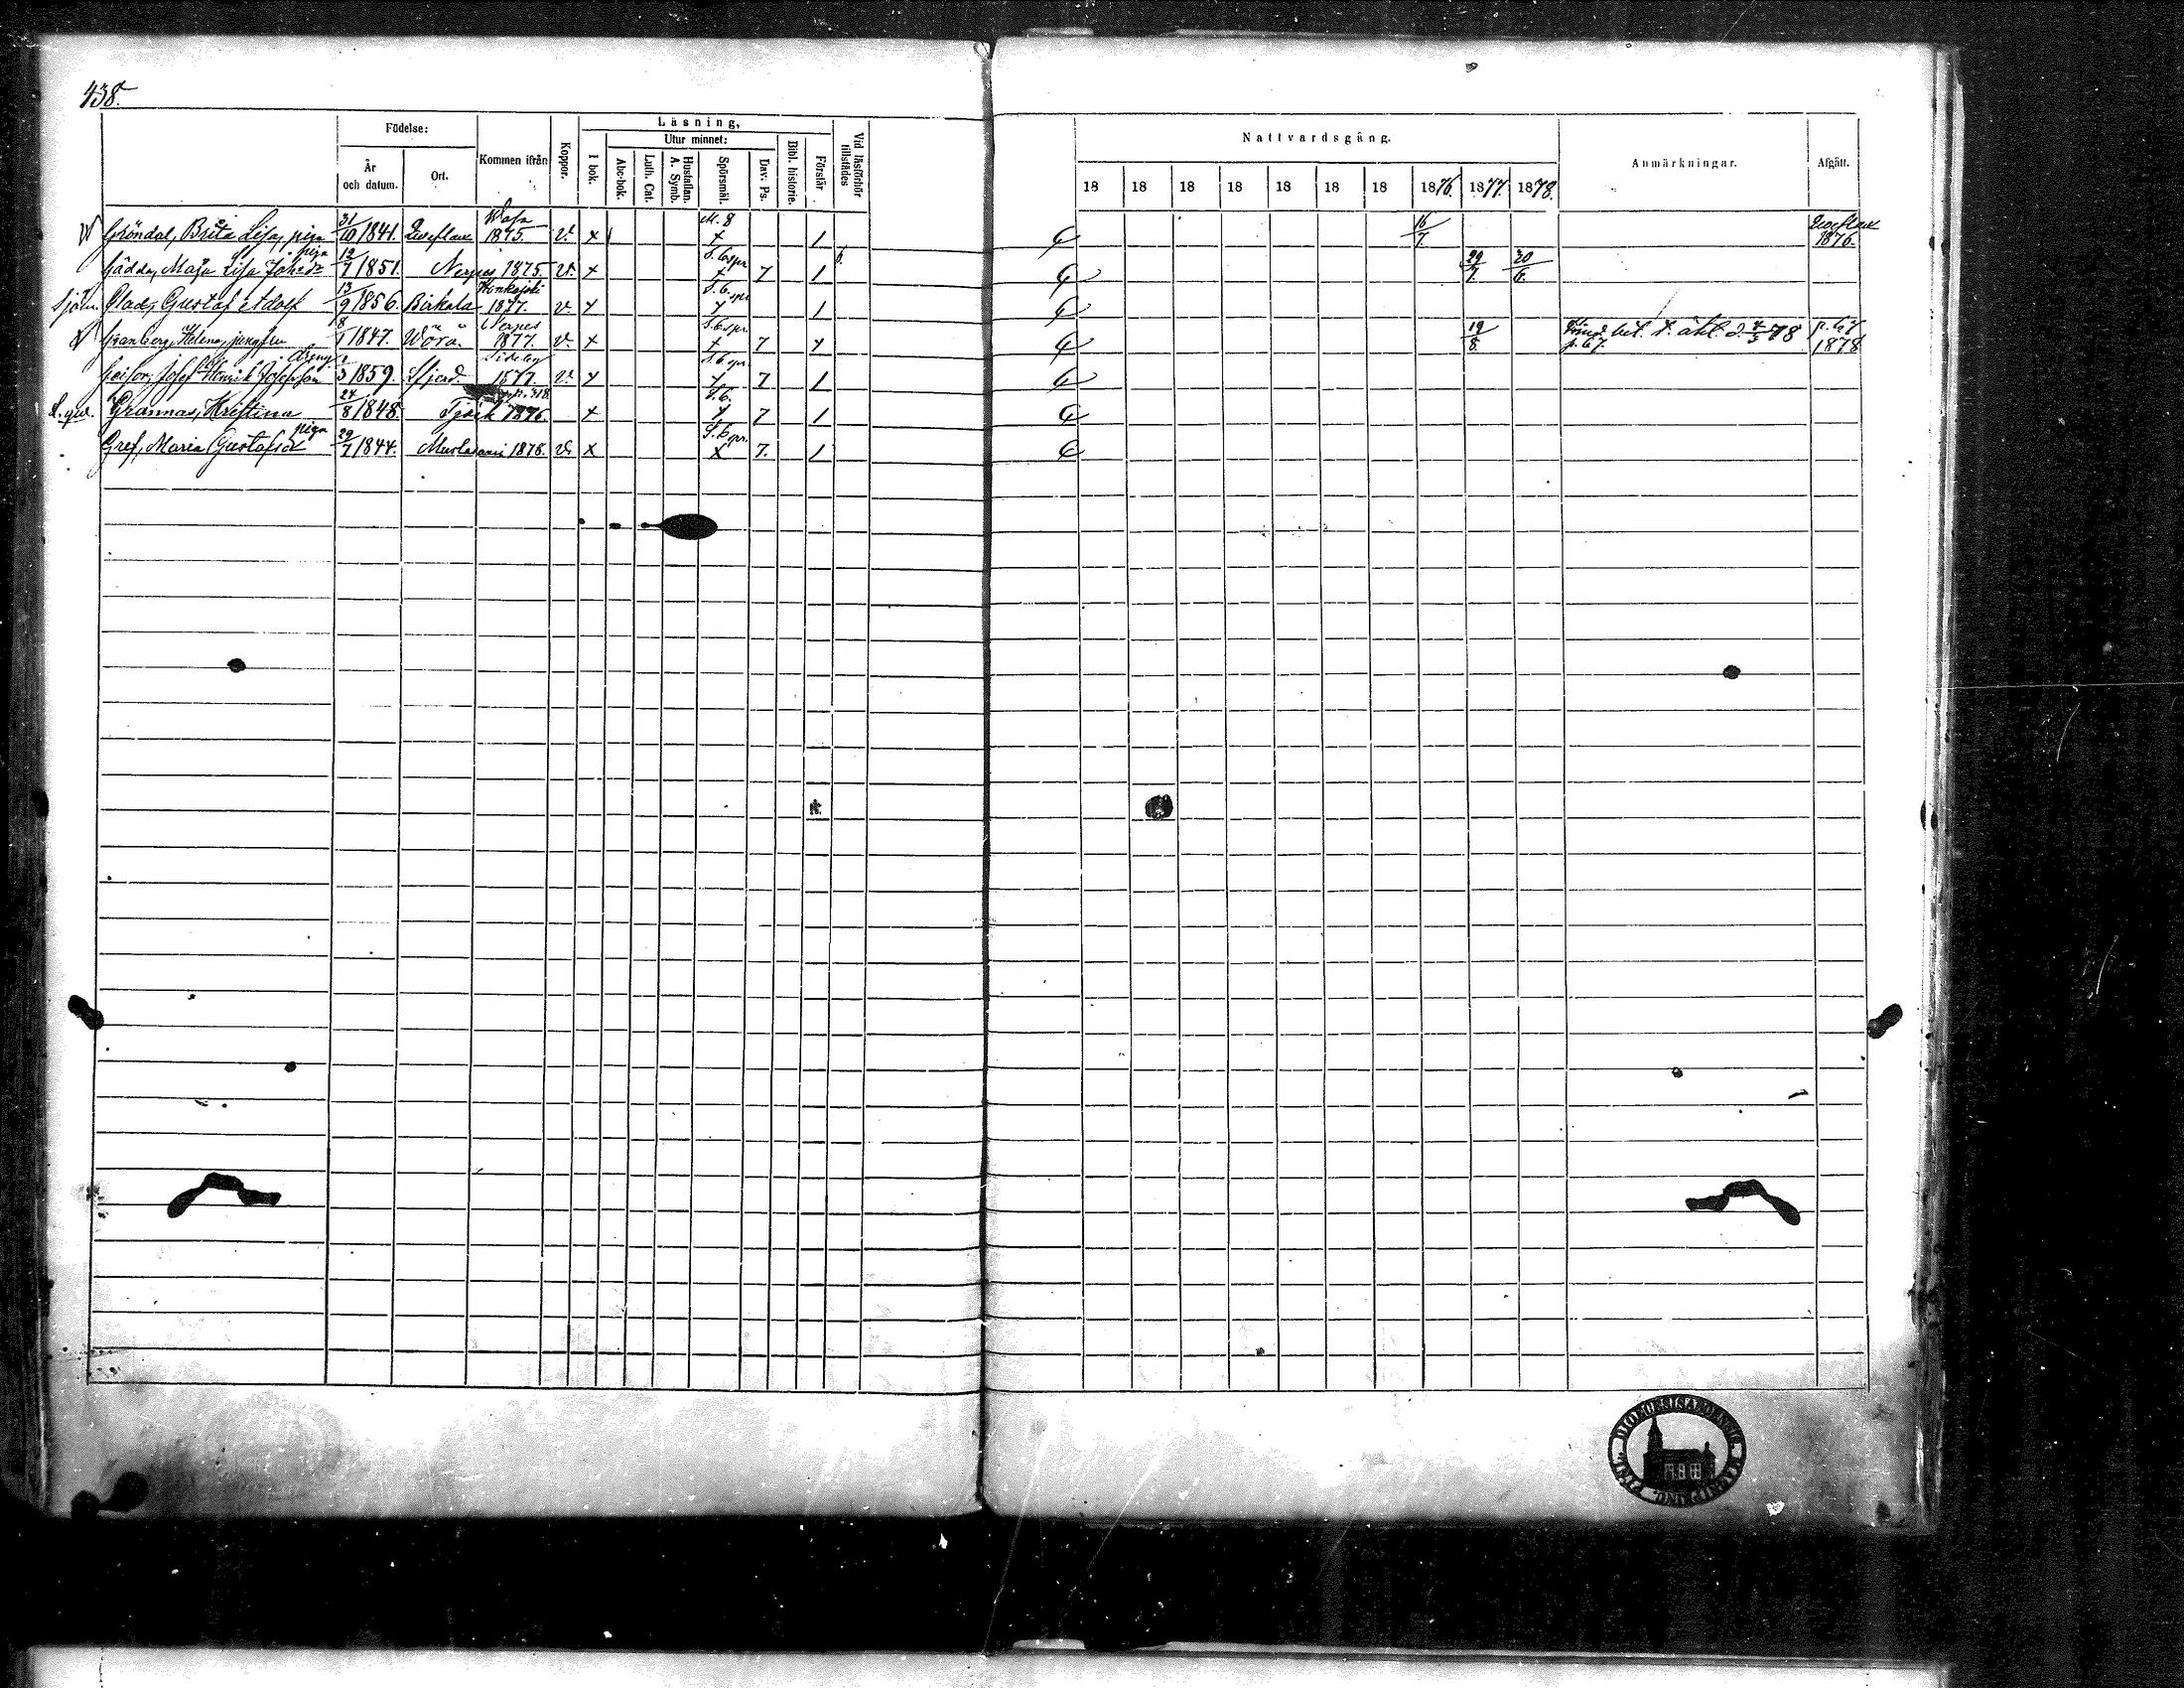 438.
Födelse: Kommen ifrån Koppor. Läsning, Vid läsförhör tillstädes Nattvardsgång. Anmärkningar. Afgått.
År och datum. Ort. I bok. Utur minnet: Bibl. historie. Förstår
Abc-bok. Luth. Cat. Hustaflan. A. Symb. Spörsmål. Dav. Ps.
18 18 18 18 18 18 18 1876. 1877. 1878.
Gröndal, Brita Lisa, piga 31/10 1841. Qveflax Wasa 1875. v. x M. 8 x 1 16/7 Qveflax 1876.
Gädda, Maja Lisa Johsdr piga 12/7 1851. Nerpes 1875. v. x S. b spr x 7 1 6. 29/7. 30/6.
Sjöm. Glad, Gustaf Adolf 13/9 1856. Birkala 1877. v. x S. b. spr x 1
Granberg, Helena, jungfru 18/1 1847. Wörå Nerpes 1877. v. x S. b spr x 7 x 19/8. p. 67. bet. t. äkt. d. 4/5 78 p. 67 1878
Josef Henrik Josefsson dräng 3 1859. Sideby 1877. v. x S. b spr. x 7 1
Grannas, Kristina 24/8 1848. Tjöck 1876. p. 318. x S. b. x 7 1
Gref, Maria Gustafsd. piga 29/7 1844. Mustasaari 1878. v. x S. b spr. x 7. 1